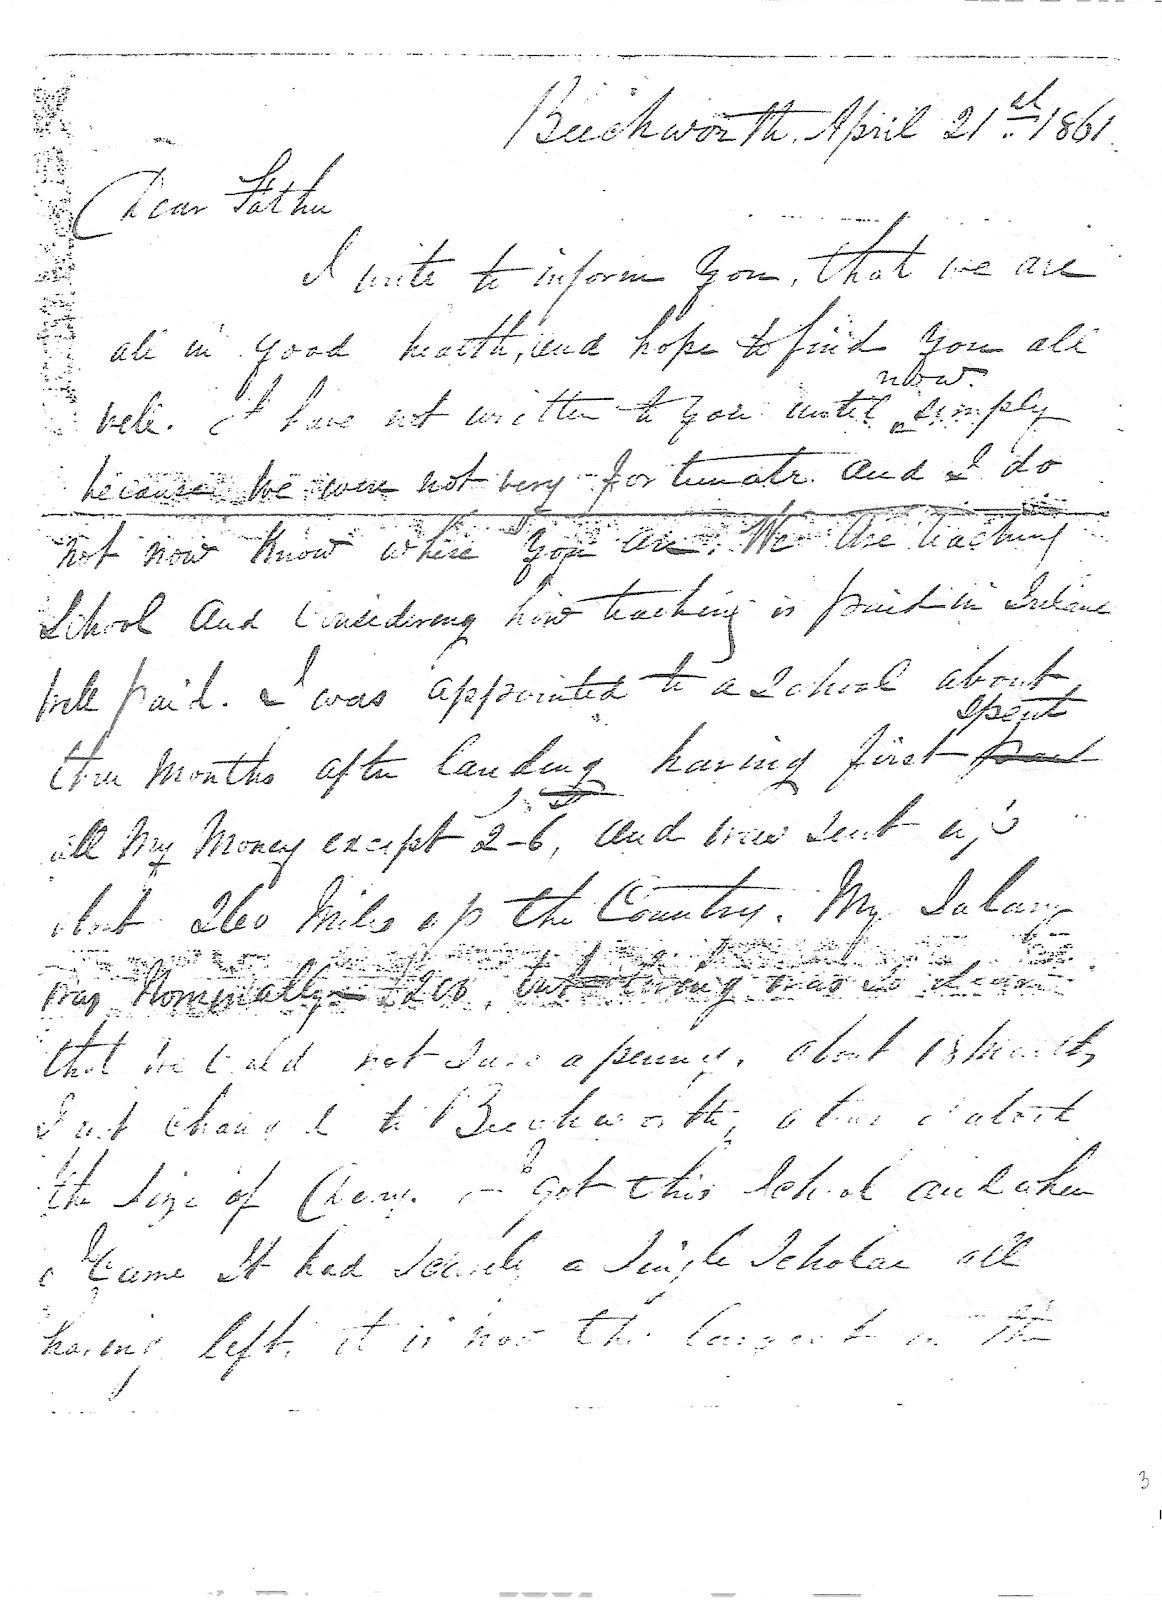 Beechworth, April 21st 1861.
Dear Father
I write to inform You, that we are
all in good health, and hope to find You all
now.
well. I have not written to you until simply
because we were not very fortunate and I do
not now know where you are. We are teaching
School and Considering how teaching is paid in Ireland
well paid. I was appointed to a School about
spent
three Months after landing having first paid
all My Money except 2-6, and was sent up
about 260 Miles up the Country. My Salary
was Nominally £200, but living was so dear
that we could not save a penny, about 18 Months
I got changed to Beechworth, a town about
the size of I got this School and when
I Came It had scarcely a Single Scholar all
having left, it is now the largest in the
3